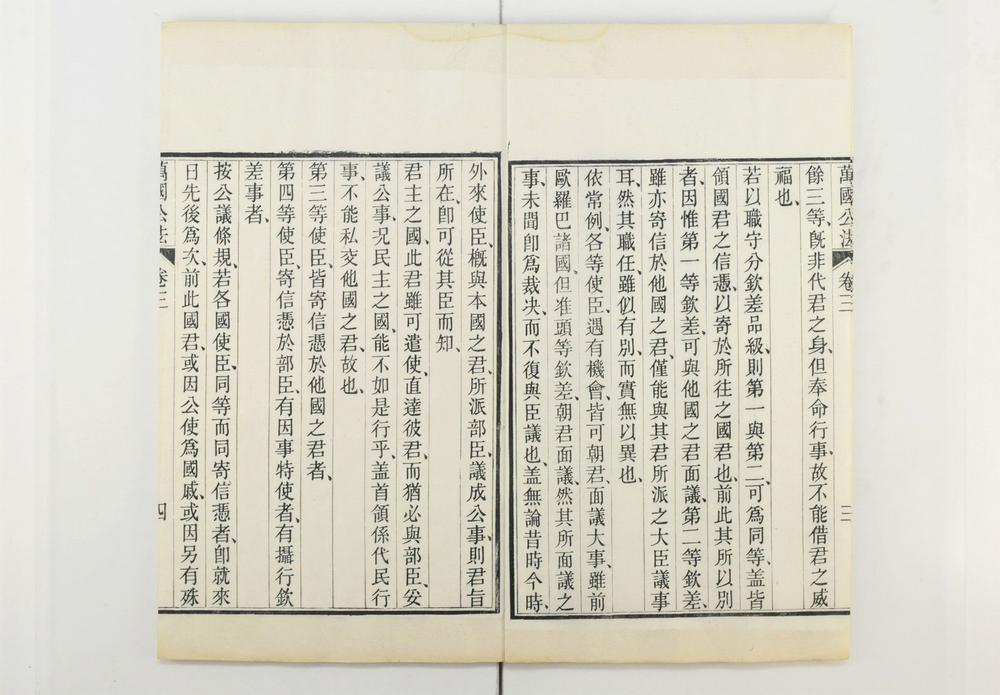 萬國公法 卷三 三
餘三等、旣非代君之身、但奉命行事、故不能借君之威
福也、
若以職守分欽差品級、則第一與第二、可爲同等、蓋皆
領國君之信憑、以寄於所往之國君也、前此其所以別
者、因惟第一等欽差、可與他國之君面議、第二等欽差、
雖亦寄信於他國之君、僅能與其君所派之大臣議事
耳、然其職任、雖似有別、而實無以異也、
依常例、各等使臣、遇有機會、皆可朝君、面議大事、雖前
歐羅巴諸國、但准頭等欽差、朝君面議、然其所面議之
事、未聞卽爲裁决、而不復與臣議也、蓋無論昔時今時、
外來使臣、槪與本國之君、所派部臣、議成公事、則君旨
所在、卽可從其臣而知、
君主之國、此君雖可遣使、直達彼君、而猶必與部臣、妥
議公事、況民主之國、能不如是行乎、蓋首領係代民行
事、不能私交他國之君故也、
第三等使臣、皆寄信憑於他國之君者、
第四等使臣、寄信憑於部臣、有因事特使者、有攝行欽
差事者、
按公議條規、若各國使臣、同等而同寄信憑者、卽就來
日先後爲次、前此國君、或因公使爲國戚、或因另有殊
萬國公法 卷三 四